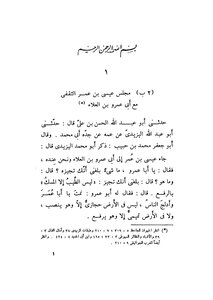 بسم الله الرحمن الرحيم
١
(٢ ب) مجلس عيسى بن عمر الثقفى
مع أبى عمرو بن العلاء (*)
حدثنى أبو عبد الله الحسن بن على قال: حدثنى
أبو عبد الله اليزيدى عن عمه عن جده أبى محمد. وقال
أبو جعفر محمد بن حبيب: ذكر أبو محمد اليزيدى قال:
جاء عيسى بن عمر إلى أبى عمرو بن العلاء ونحن عنده،
فقال: يا أبا عمرو، ما شىء بلغنى أنك تجيزه؟ قال:
وما هو؟ قال: بلغنى أنك تجيز: «ليس الطيب إلا المسك»
فقال له أبو عمرو: نمت يا أبا عمر
وأدلج الناس، ليس فى الأرض حجازى إلا وهو ينصب،
ولا فى الأرض تميمى إلا وهو يرفع.
١